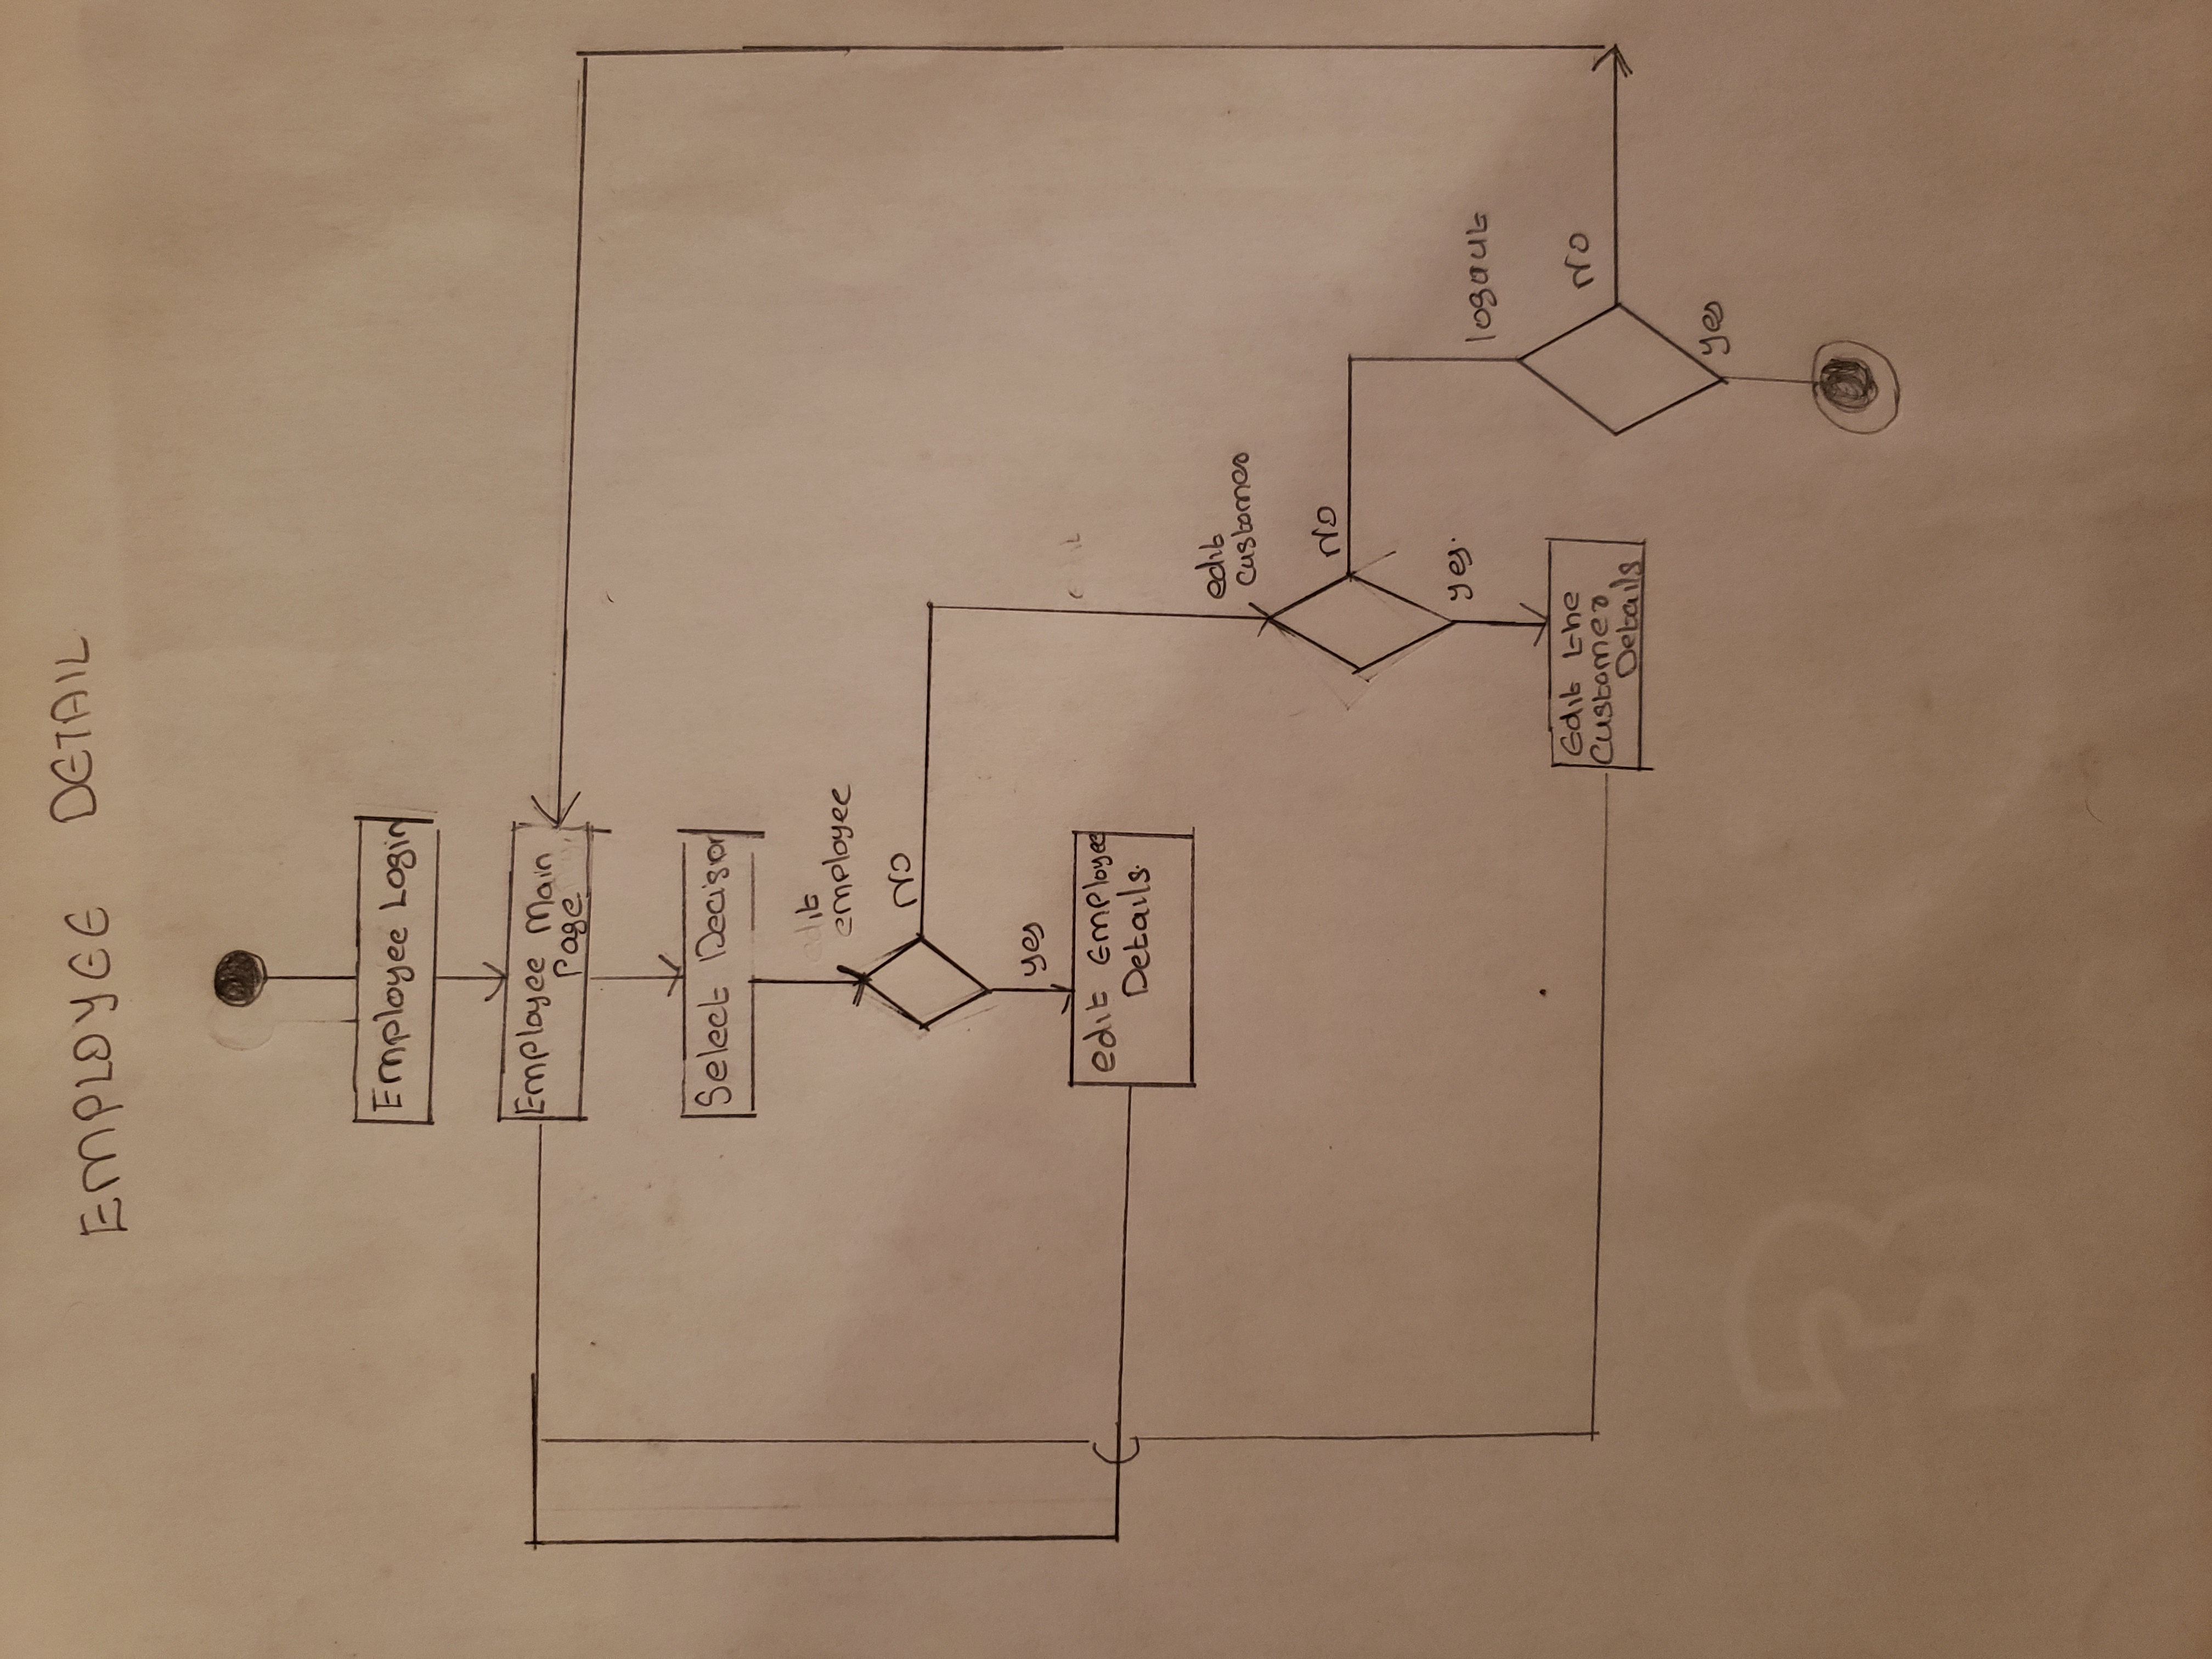 EMPLOYEE DETAIL
Employee Login
Employee Main
Page
Select Decision
edit
employee
NO
yes
edit Employee
Details.
edit
customer
NO
yes.
logout
Edit the
Customer
Details
NO
yes